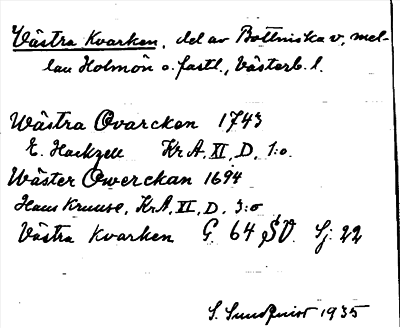 Västra Kvarken, del av Bottniska v, mel-
lan Holmön o. fastl., Västerb. l.
Wästra Qvarcken 1743
E. Hackzell Kr.A. XI, D, 1:o.
Wäster Qwerckan 1694
Hans Kruuse, Kr.A. XI, D. 3:o
Västra Kvarken G 64 SV. Sj: 22
S. Sundqvist 1935